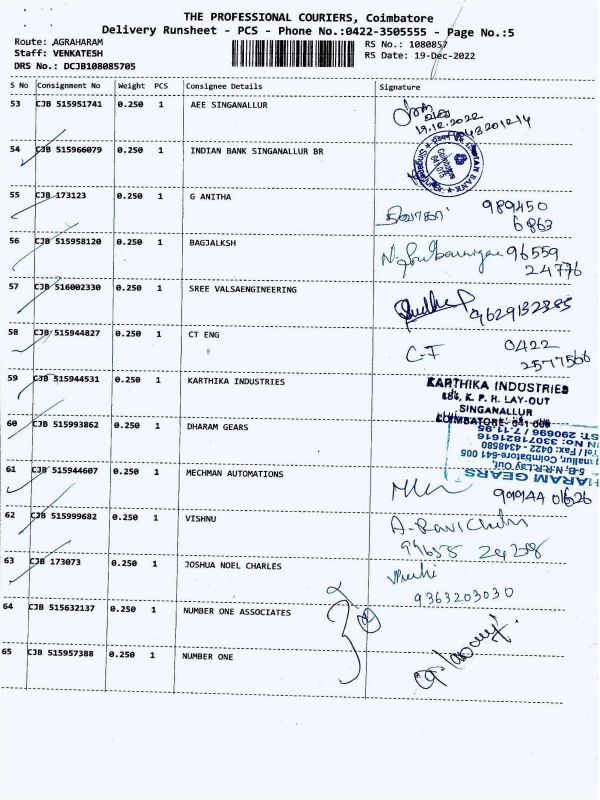 THE PROFESSIONAL COURIERS, Coimbatore
Delivery Runsheet - PCS - Phone No.:0422-3505555 - Page No.:5
Route: .AGRAHARAM
RS No.: 1080857
Staff: VENKATESH
RS Date: 19-Dec-2022
DRS No.: DCJB108085705
S No Consignment No Weight PCS Consignee Details Signature
53 CJB 515951741 0.250 1 AEE SINGANALLUR
19.12.2022
54 CJB 515966079 0.250 1 INDIAN BANK SINGANALLUR BR
55 CJB 173123 0.250 1 G ANITHA
989450
6863
56 CJB 515958120 0.250 1 BAGJALKSH
96559
24776
57 CJB 516002330 0.250 1 SREE VALSAENGINEERING
58 CJB 515944827 0.250 1 CT ENG
0422
2577566
59 CJB 515944531 0.250 1 KARTHIKA INDUSTRIES
KARTHIKA INDUSTRIES
K. P. H. LAY-OUT
SINGANALLUR
COIMBATORE- 641 005
60 CJB 515993862 0.250 1 DHARAM GEARS
HARAM GEARS
5-B, N.R.R.Lay Out,
Coimbatore-641 005
61 CJB 515944607 0.250 1 MECHMAN AUTOMATIONS
62 CJB 515999682 0.250 1 VISHNU
63 CJB 173073 0.250 1 JOSHUA NOEL CHARLES
9363203030
64 CJB 515632137 0.250 1 NUMBER ONE ASSOCIATES
65 CJB 515957388 0.250 1 NUMBER ONE